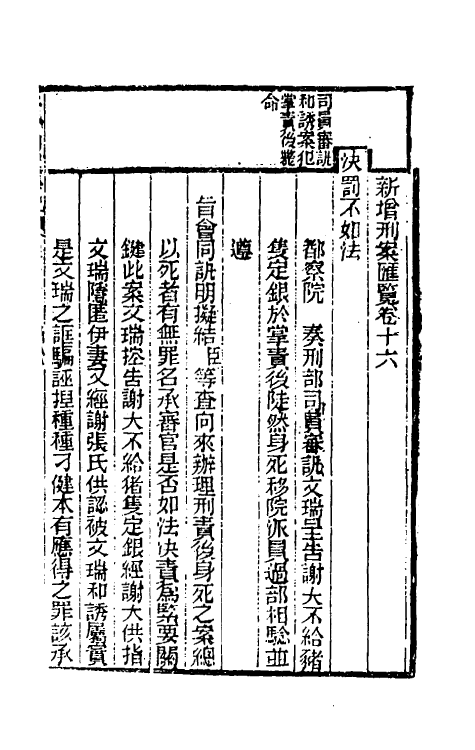 新增刑案匯覽卷十六
決罰不如法
司員審訊
和誘案犯
掌責後斃
命
都察院　奏刑部司員審訊文瑞呈告謝大不給豬
隻定銀於掌責後陡然身死移院派員過部相驗並
遵
旨會同訊明擬結臣等查向來辦理刑責後身死之案總
以死者有無罪名承審官是否如法決責為緊要關
鍵此案文瑞控告謝大不給豬隻定銀經謝大供指
文瑞隱匿伊妻又經謝張氏供認被文瑞和誘屬實
是文瑞之誆騙誣捏種種刁健本有應得之罪該承